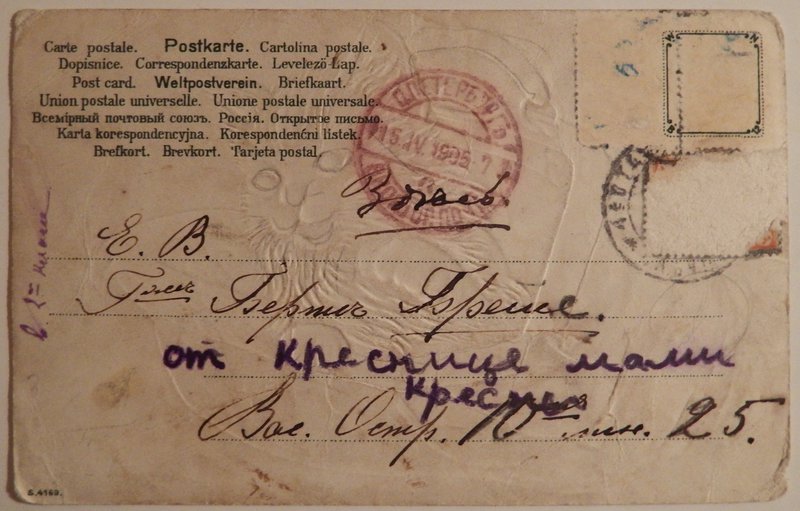 Carte postale. Postkarte. Cartolina postale.
Dopisnice. Correspondenzkarte. Levelező-Lap.
Post card. Weltpostverein. Briefkaart.
Union postale universelle. Unione postale universale.
Всемірный почтовый союзъ. Россія. Открытое письмо.
Karta korespondencyjna. Korespondenčni listek.
Brefkort. Brevkort. Tarjeta postal.
С.ПЕТЕРБУРГЪ
15 IV 1905
Здѣсь
Е. В.
Бертѣ
от Креснице мами
Вас. Остр. лин. 25.
S. 4169.